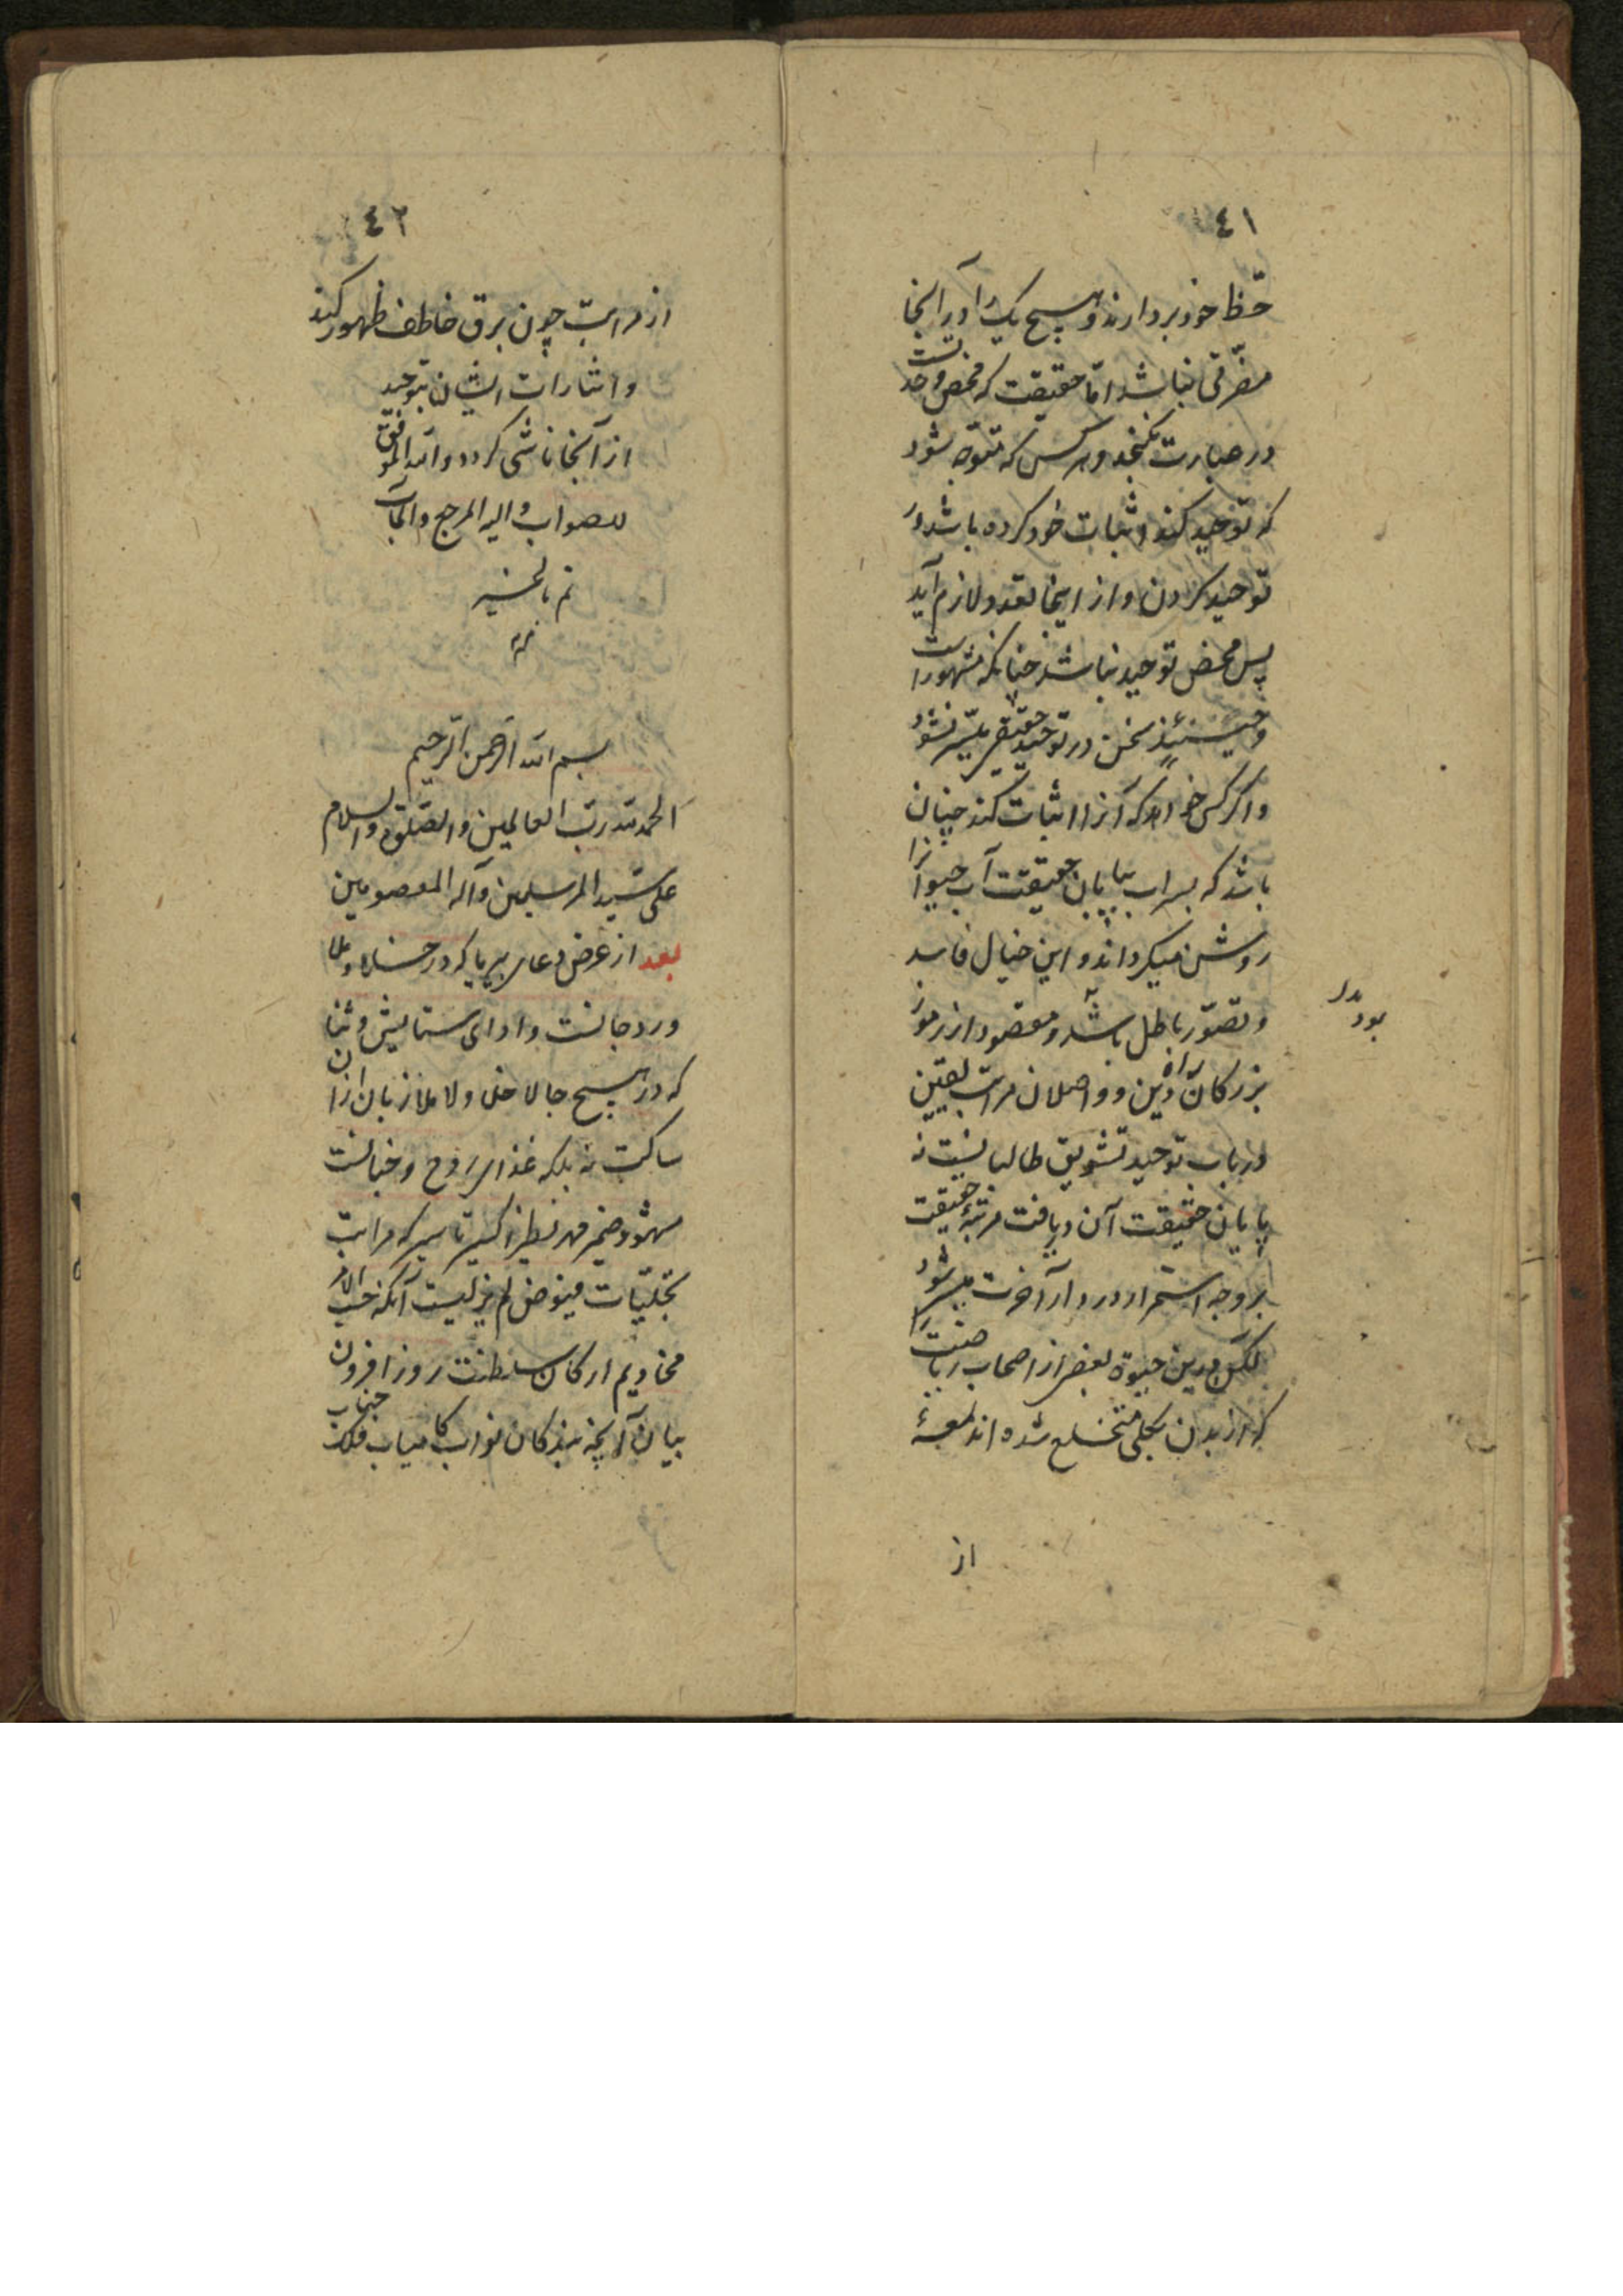 ٤١
حظ خود بردارند و هیچ یک را در آنجا
مضرتی نباشد اما حقیقت که محض وحدتست
در عبارت نگنجد و هر کس که متوجه شود
که توحید کند اثبات خود کرده باشد و
توحید کردن و از اینجا تعدد لازم آید
پس محض توحید نباشد چنانکه مشهور است
و حینئذ سخن در توحید حقیقی میسر نشود
و اگر کس خواهد که آنرا اثبات کند چنان
باشد که بسراب بیابان حقیقت آب حیوانرا
روشن میگرداند و این خیال فاسد
و تصور باطل باشد و مقصود از رموز
بود بدل
بزرگان راه دین و واصلان مراتب یقین
در باب توحید تشویق طالبانست نه
بیان حقیقت آن و یافت مرتبهٔ حقیقت
بر وجه استمرار در دار آخرت میسر شود
لکن درین حیوة بعضی از اصحاب ریاضت را
که از بدن بکلی منخلع شده اند لمعهٔ
از
٤٢
از مراتب چون برق خاطف ظهور کند
و اشارات ایشان بتوحید
از آنجا ناشی کردد و الله الموفق
للصواب و الیه المرجع والمآب
تم بالخیر
بسم الله الرحمن الرحیم
الحمد لله رب العالمین والصلوة والسلام
علی سید المرسلین وآله المعصومین
بعد از عرض دعای بیریا که در خلا و ملا
ورد جانست و ادای ستایش و ثنا
که در هیچ حال لا خلا ولا ملا زبان ازان
ساکت نه بلکه غذای روح و جنانست
مشهود ضمیر مهر نظیر اکسیر تاثیر که مراتب
تجلیات فیوض لم یزلیست آنکه حسب الامر
مخادیم ارکان سلطنت روز افزون
بیان آنچه بندکان نواب کامیاب فلک جناب